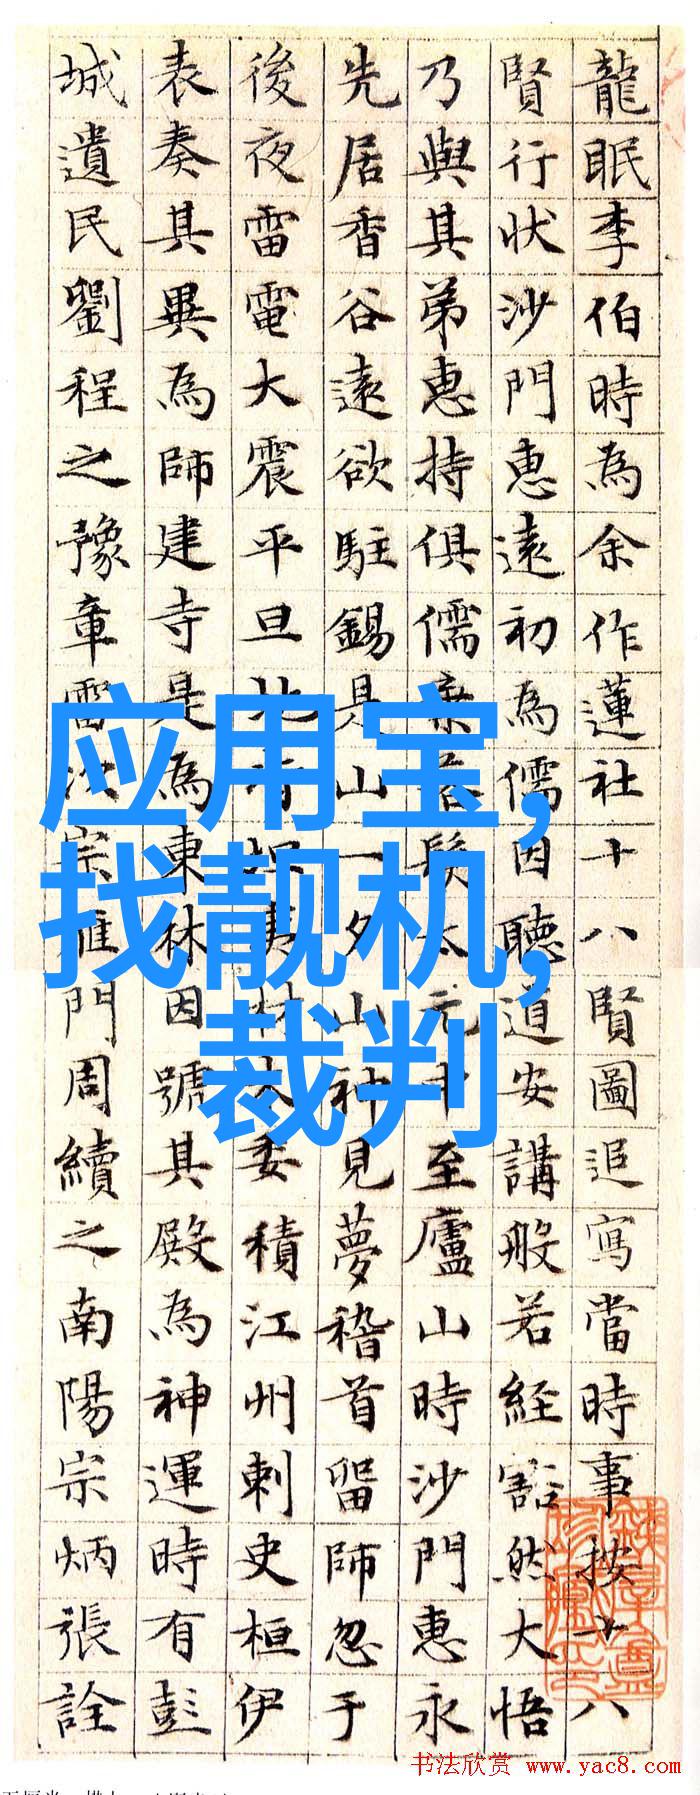 龍眠李伯時為余作蓮社十八賢圖追寫當時事按十八
賢行狀沙門惠遠初為儒因聽道安講般若經豁然大悟
乃與其弟惠持俱儒髮太元至廬山時沙門惠永
先居香谷遠欲駐錫是山一夕山神見夢稽首留師忽于
後夜雷電大震平旦委積江州刺史桓伊
表奏其異為師建寺是為東林因號其殿為神運時有彭
城遺民劉程之豫章雷次宗雁門周續之南陽宗炳張詮
应用宝,
找靓机,
裁判
书法欣赏 www.yac8.com